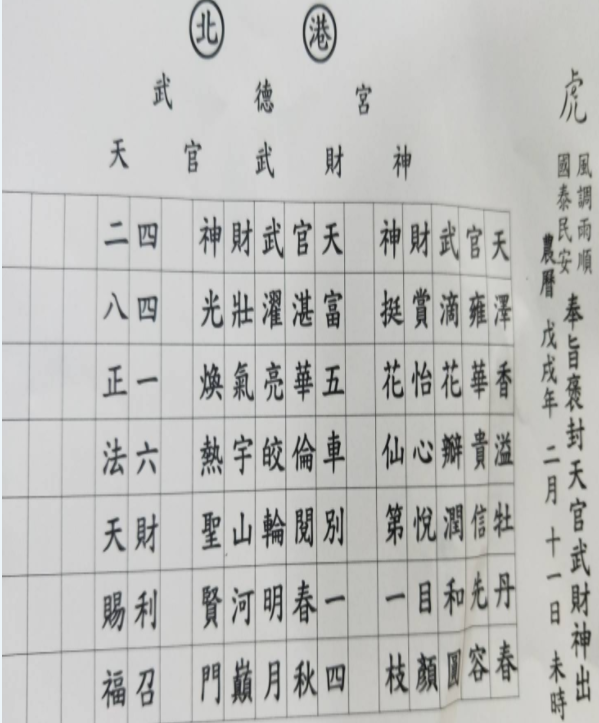 北港
武德宮
天官武財神
虎
風調雨順
國泰民安
奉旨褒封天官武財神出
農曆 戊戌年 二月 十一日 未時
天澤香溢牡丹春
官雍華貴信先容
武滴花瓣潤和圓
財賞怡心悅目顏
神挺花仙第一枝
天富五車別一四
官湛華倫閱春秋
武濯亮皎輪明月
財壯氣宇山河巔
神光煥熱聖賢門
四四一六財利召
二八正法天賜福